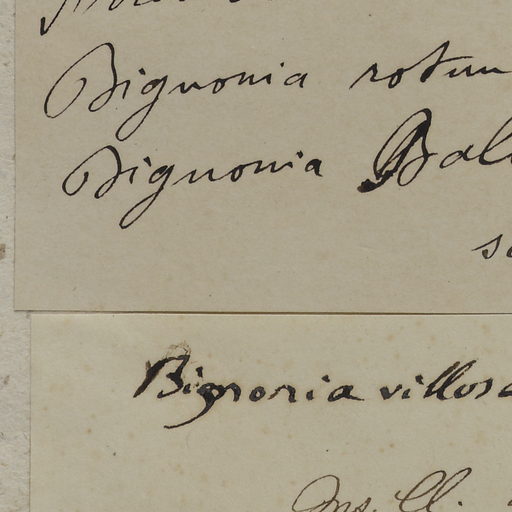 Bignonia rotun
Bignonia Bal
s
Bignonia villosa